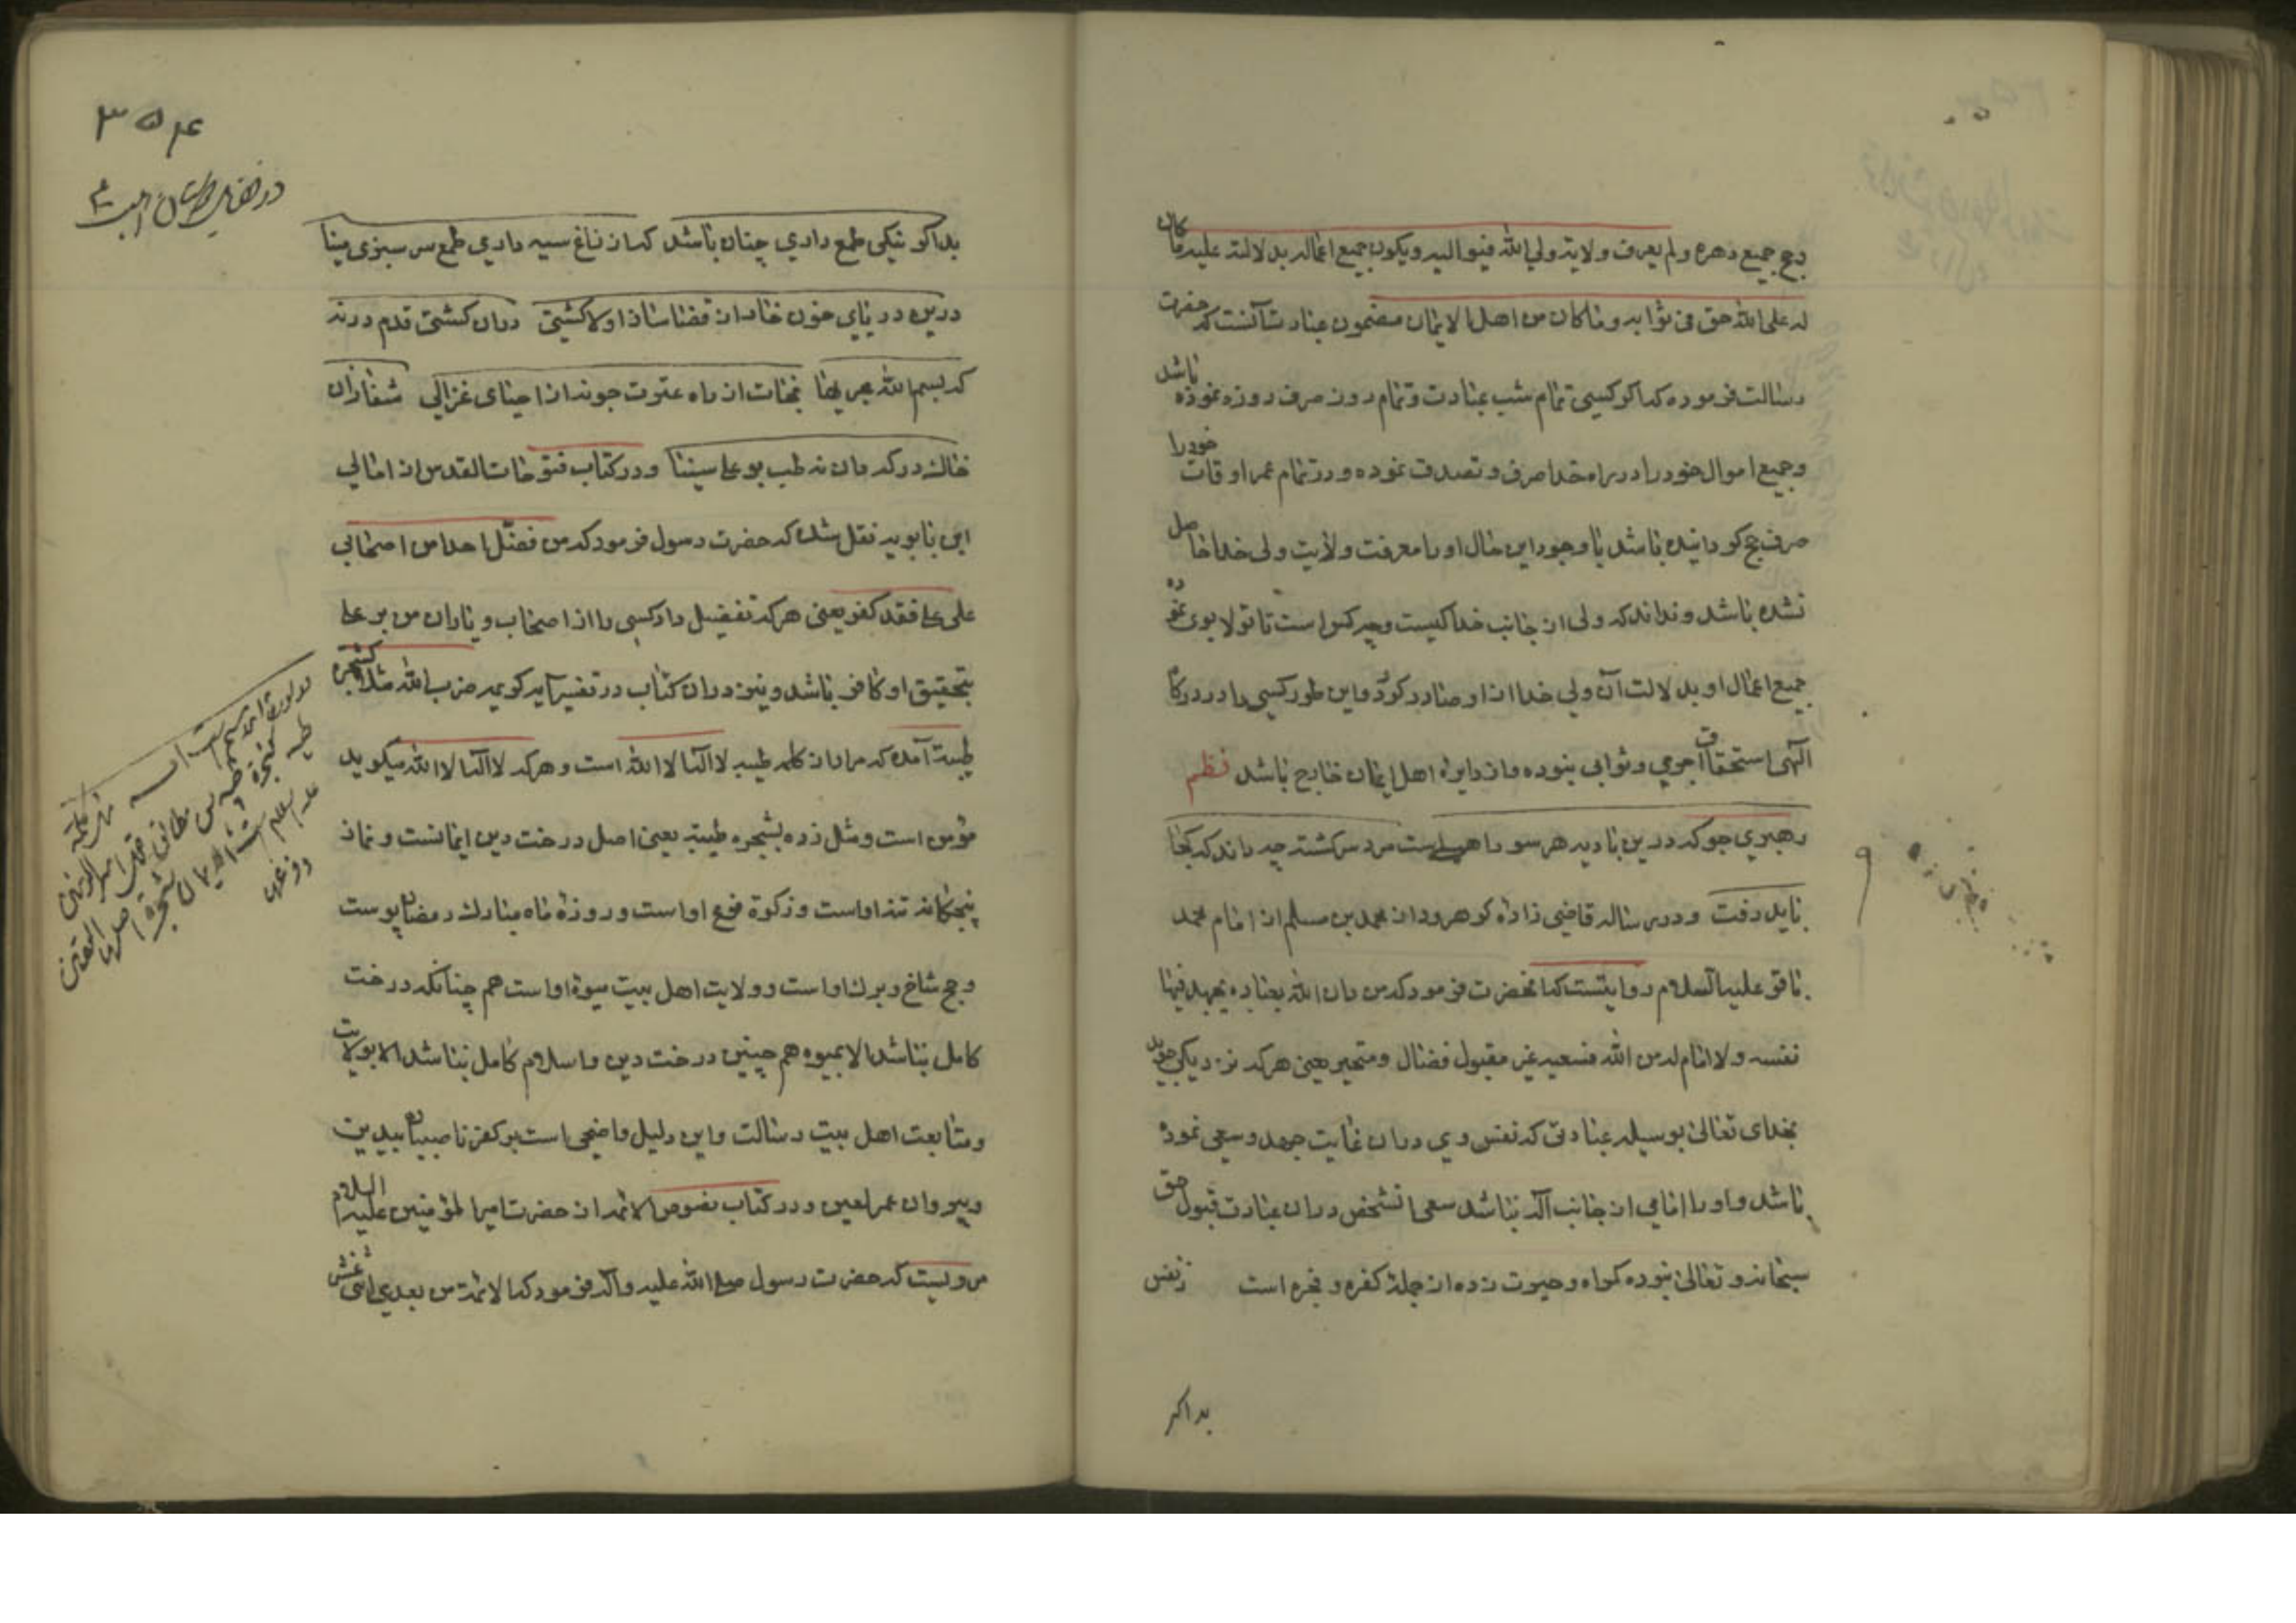 وحج جمیع دهره ولم یعرف ولایة ولی الله فیوالیه ویکون جمیع اعماله بدلالته علیه ما کان
له علی الله حق فی ثوابه وما کان من اهل الایمان مضمون عبارت آنست که حضرت
رسالت فرموده که اکر کسی تمام شب عبادت وتمام روز صرف روزه نموده باشد
وجمیع اموال خود را در راه خدا صرف وتصدق نموده ودر تمام عمر اوقات خود را
صرف حج کردانیده باشد با وجود این حال او را معرفت ولایت ولی خدا حاصل
نشده باشد ونداند که ولی از جانب خدا کیست وچه کس است تا تولا بوی نموده
جمیع اعمال او بدلالت آن ولی خدا از او صادر کردد واین طور کسی را در درکاه
الهی استحقاق اجری وثوابی نبوده واز دایره اهل ایمان خارج باشد نظم
رهبری جو که درین بادیه هر سو راهیست مرد سرکشته چه داند که کجا
باید رفت ودر رساله قاضی زاده کرهرود از محمد بن مسلم از امام محمد
باقر علیه السلام روایتست که انحضرت فرمود که من دان الله بعباده یجهد فیها
نفسه ولا امام له من الله فسعیه غیر مقبول فضال ومتحیر یعنی هر که نزدیکی جوید
بخدای تعالی بوسیله عبادتی که نفس وی دران غایت جهد وسعی نموده
باشد واو را امامی از جانب اله نباشد سعی انشخص دران عبادت قبول حق
سبحانه وتعالی نبوده کمراه وحیرت زده از جمله کفره وفجره است زنفس
بد اکر
۳۵۴
بد اکر نیکی طمع داری چنان باشد که از زاغ سیه داری طمع سر سبزی مینا
درین دریای خون خار از قضا سازد اولا کشتی دران کشتی قدم در نه
که بسم الله مجریها نجات از راه عترت جو نه از احیای غزالی شفا زان
خاك درکه دان نه طب بو علی سینا ودر کتاب فتوحات القدس از امالی
ابن بابویه نقل شده که حضرت رسول فرمود که من فضّل احدا من اصحابی
علی علی فقد کفر یعنی هر که تفضیل داد کسی را از اصحاب ویاران من بر علی
بتحقیق او کافر باشد ونیز دران کتاب در تفسیر آیه کریمه ضرب الله مثلا کشجره
طیبة آمده که مراد از کلمه طیبه لا اله الا الله است وهر که لا اله الا الله میکوید
مؤمن است ومثل زده بشجره طیبة یعنی اصل درخت دین ایمانست ونماز
پنجکانه تنه اواست وزکوة فرع اواست وروزهٔ ماه مبارك رمضان پوست
وحج شاخ وبرك اواست وولایت اهل بیت میوهٔ اواست هم چنانکه درخت
کامل نباشد الا بمیوه هم چنین درخت دین واسلام کامل نباشد الا بولایت
ومتابعت اهل بیت رسالت واین دلیل واضحی است بر کفر ناصبیان بیدین
وپیروان عمر لعین ودر کتاب نصوص الائمه از حضرت امیر المؤمنین علیه السلام
مرویست که حضرت رسول صلی الله علیه واله فرمود که الائمة من بعدی اثنی عشر